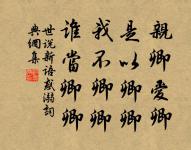 親卿愛卿
是以卿卿
我不卿卿
誰當卿卿
世說新語惑溺詞
典網集